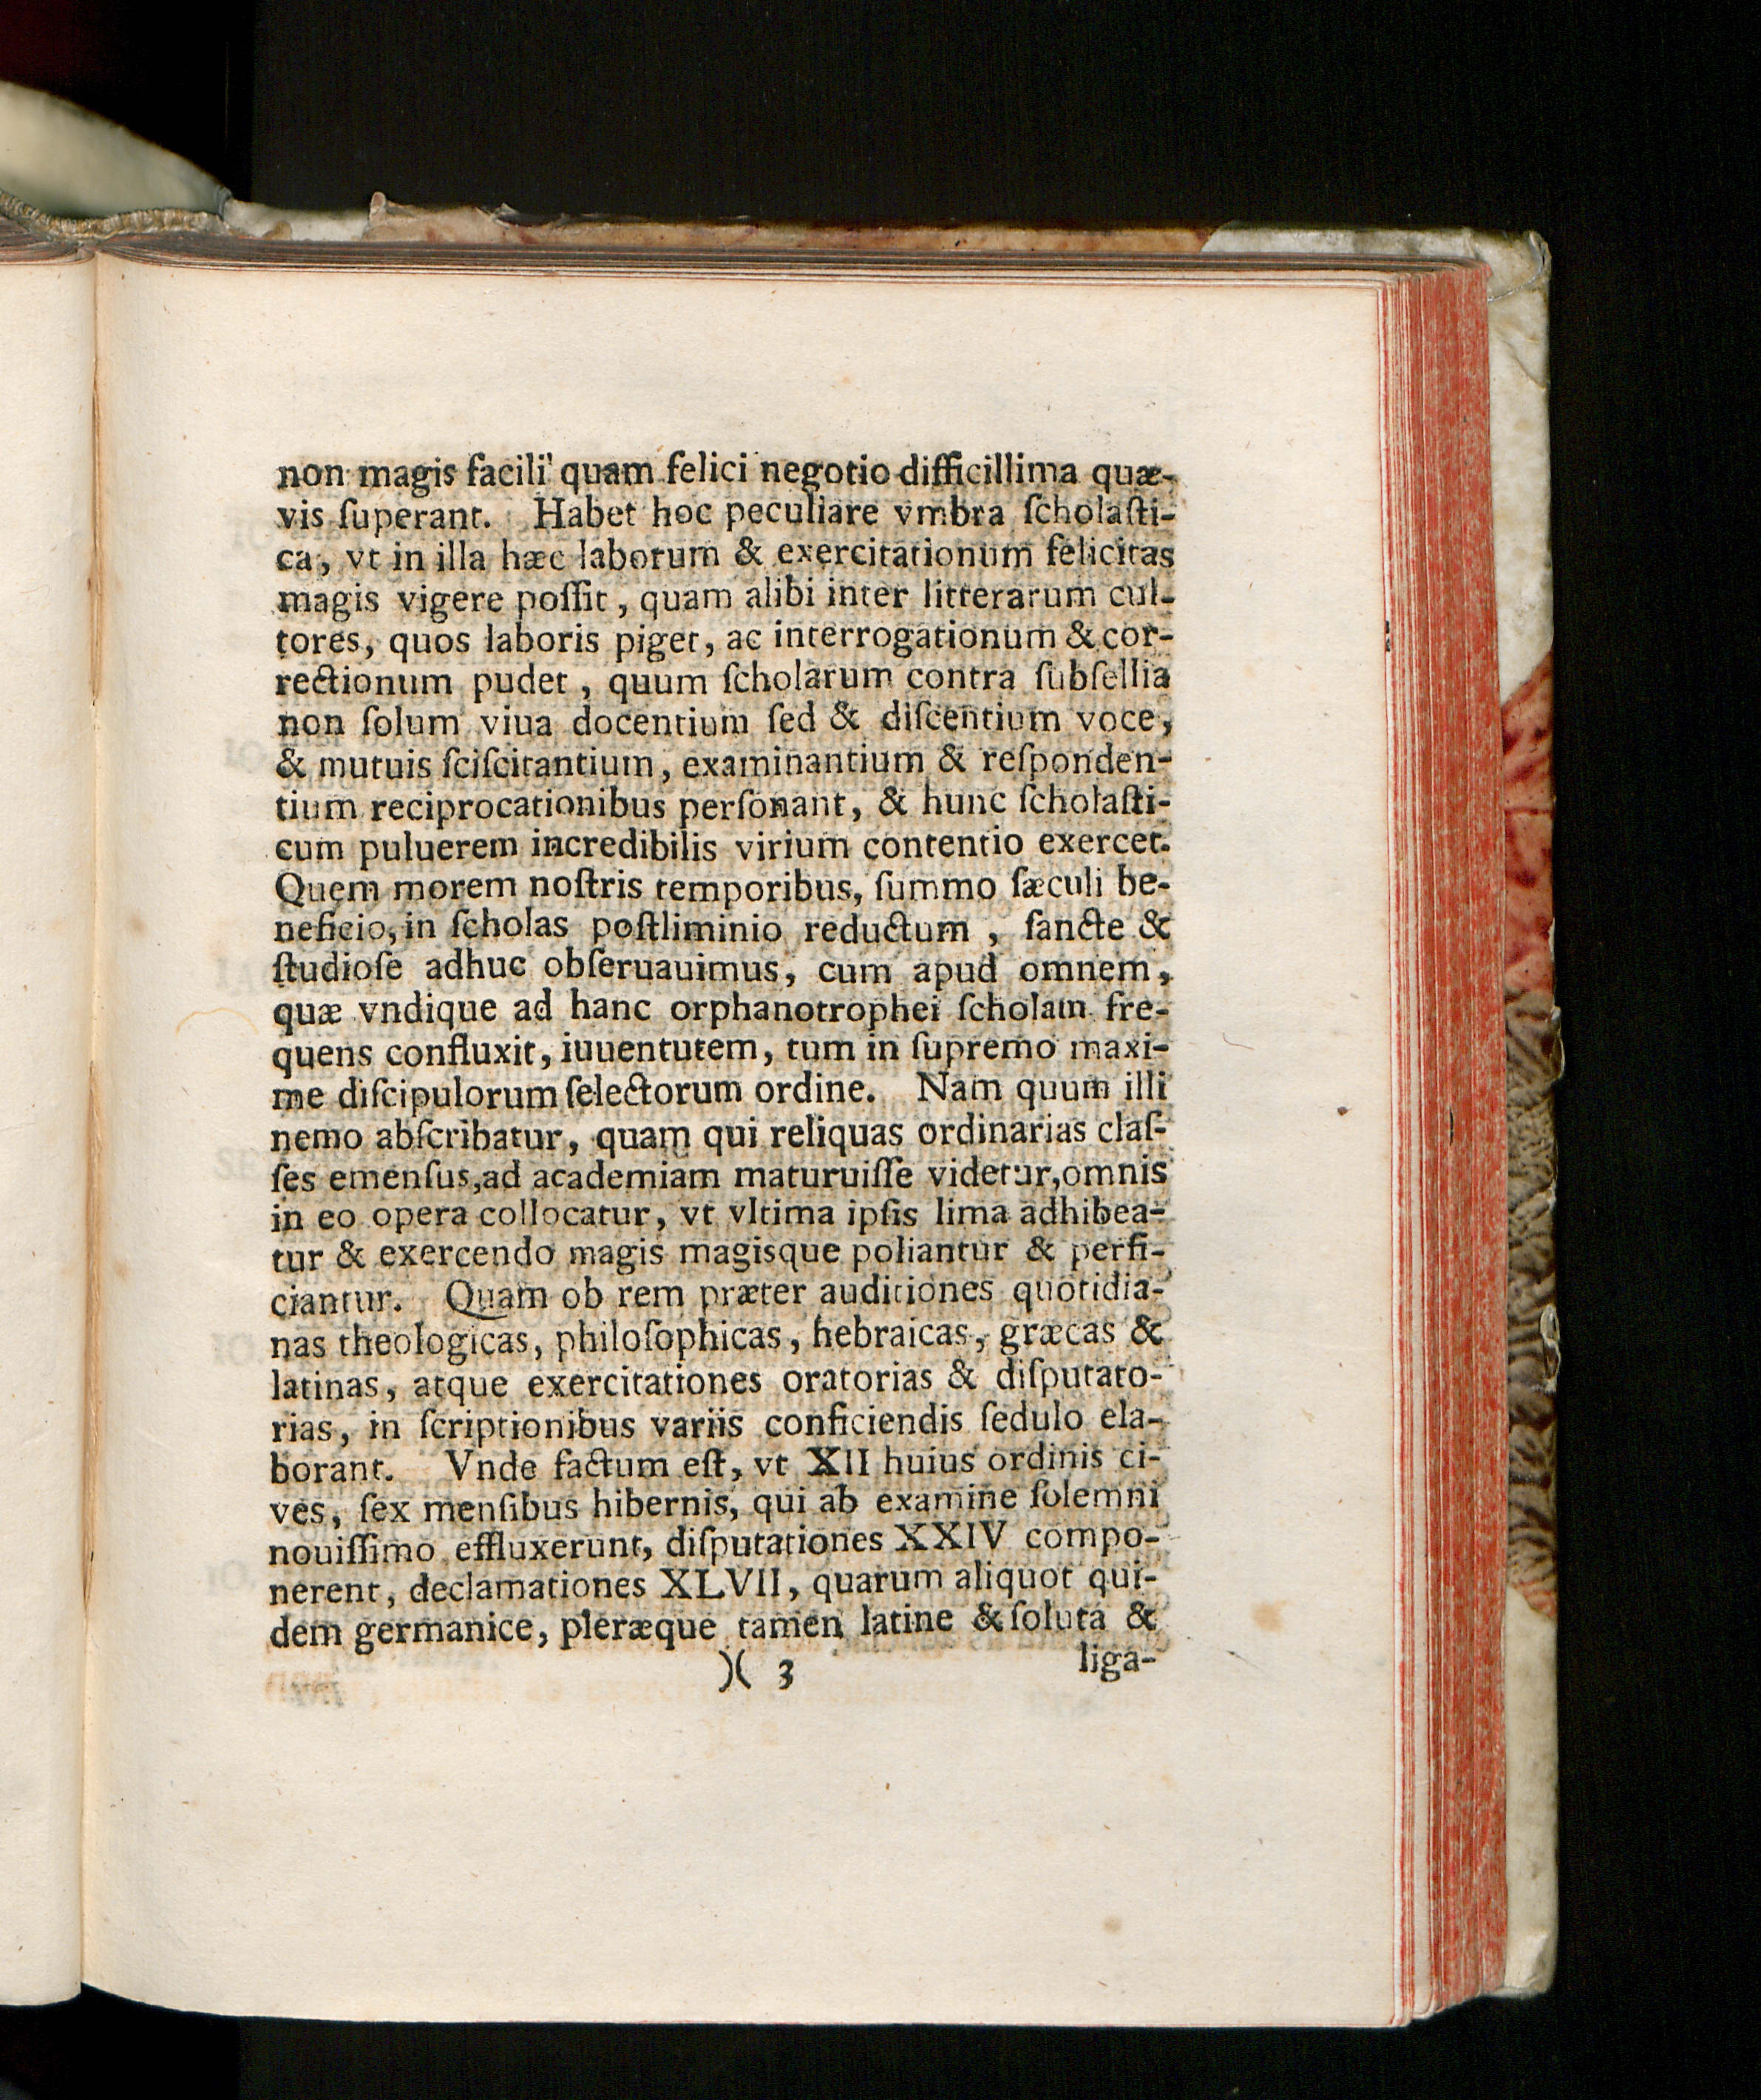 non magis facili quam felici negotio difficillima quæ-
vis ſuperant. Habet hoc peculiare vmbra ſcholaſti-
ca, vt in illa hæc laborum & exercitationum felicitas
magis vigere poſſit, quam alibi inter litterarum cul-
tores, quos laboris piget, ac interrogationum & cor-
rectionum pudet, quum ſcholarum contra ſubſellia
non ſolum viua docentium ſed & diſcentium voce,
& mutuis ſciſcitantium, examinantium & reſponden-
tium reciprocationibus perſonant, & hunc ſcholaſti-
cum puluerem incredibilis virium contentio exercet.
Quem morem noſtris temporibus, ſummo ſæculi be-
neficio, in ſcholas poſtliminio reductum, ſancte &
ſtudioſe adhuc obſeruauimus, cum apud omnem,
quæ vndique ad hanc orphanotrophei ſcholam fre-
quens confluxit, iuuentutem, tum in ſupremo maxi-
me diſcipulorum ſelectorum ordine. Nam quum illi
nemo abſcribatur, quam qui reliquas ordinarias claſ-
ſes emenſus, ad academiam maturuiſſe videtur, omnis
in eo opera collocatur, vt vltima ipſis lima adhibea-
tur & exercendo magis magisque poliantur & perfi-
ciantur. Quam ob rem præter auditiones quotidia-
nas theologicas, philoſophicas, hebraicas, græcas &
latinas, atque exercitationes oratorias & diſputato-
rias, in ſcriptionibus variis conficiendis ſedulo ela-
borant. Vnde factum eſt, vt XII huius ordinis ci-
ves, ſex menſibus hibernis, qui ab examine ſolemni
nouiſſimo effluxerunt, diſputationes XXIV compo-
nerent, declamationes XLVII, quarum aliquot qui-
dem germanice, pleræque tamen latine & ſoluta &
)( 3 liga-